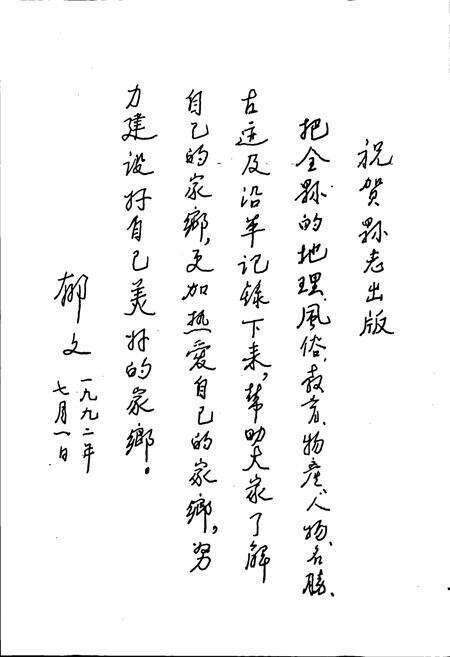 祝賀縣志出版
把全縣的地理、風俗、教育、物產、人物、名勝、
古迹及沿革记録下来，幫助大家了解
自己的家鄉，更加热愛自己的家鄉，努
力建设好自己美好的家鄉。
郁文
一九九二年
七月一日